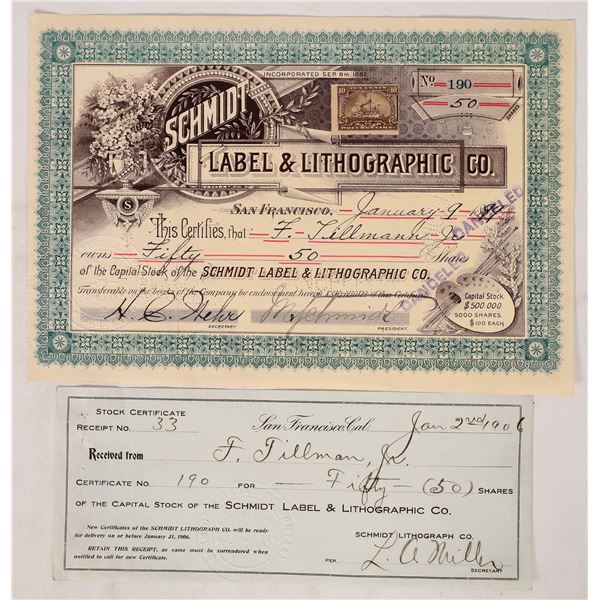 INCORPORATED SEP. 8TH 1882.
No 190
50
SHARES
SCHMIDT
LABEL & LITHOGRAPHIC CO.
SAN FRANCISCO, January 9
This Certifies, that F. Tillmann Jr
owns Fifty 50 Shares
of the Capital Stock of the SCHMIDT LABEL & LITHOGRAPHIC CO.
Transferable on the books of the Company by endorsement hereon & surrender of this Certificate
CANCELED CANCELED
S
10
DOCUMENTARY
Capital Stock
$500.000
5000 SHARES
$100 EACH
SECRETARY
Schmidt
PRESIDENT.
STOCK CERTIFICATE
RECEIPT NO. 33
San Francisco, Cal. Jan 2nd 1906
Received from F. Tillman, Jr.
CERTIFICATE NO. 190 FOR Fifty (50) SHARES
OF THE CAPITAL STOCK OF THE SCHMIDT LABEL & LITHOGRAPHIC CO.
New Certificates of the SCHMIDT LITHOGRAPH CO. will be ready
for delivery on or before January 31, 1906.
RETAIN THIS RECEIPT, as same must be surrendered when
notified to call for new Certificate.
SCHMIDT LITHOGRAPH CO.
PER L. A. Miller
SECRETARY